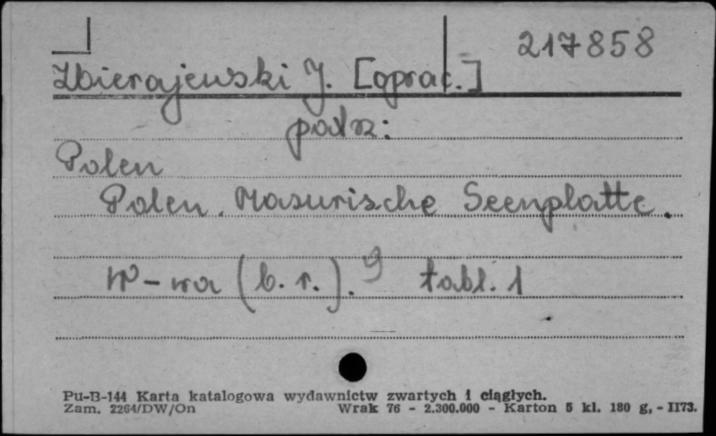 217858
Zbierajewski J. [oprac.]
patrz:
Polen
Polen. Masurische Seenplatte.
W-wa (b. r.). 9 tabl. 1
Pu-B-144 Karta katalogowa wydawnictw zwartych i ciągłych.
Zam. 2264/DW/On Wrak 76 - 2.300.000 - Karton 5 kl. 180 g, - II73.